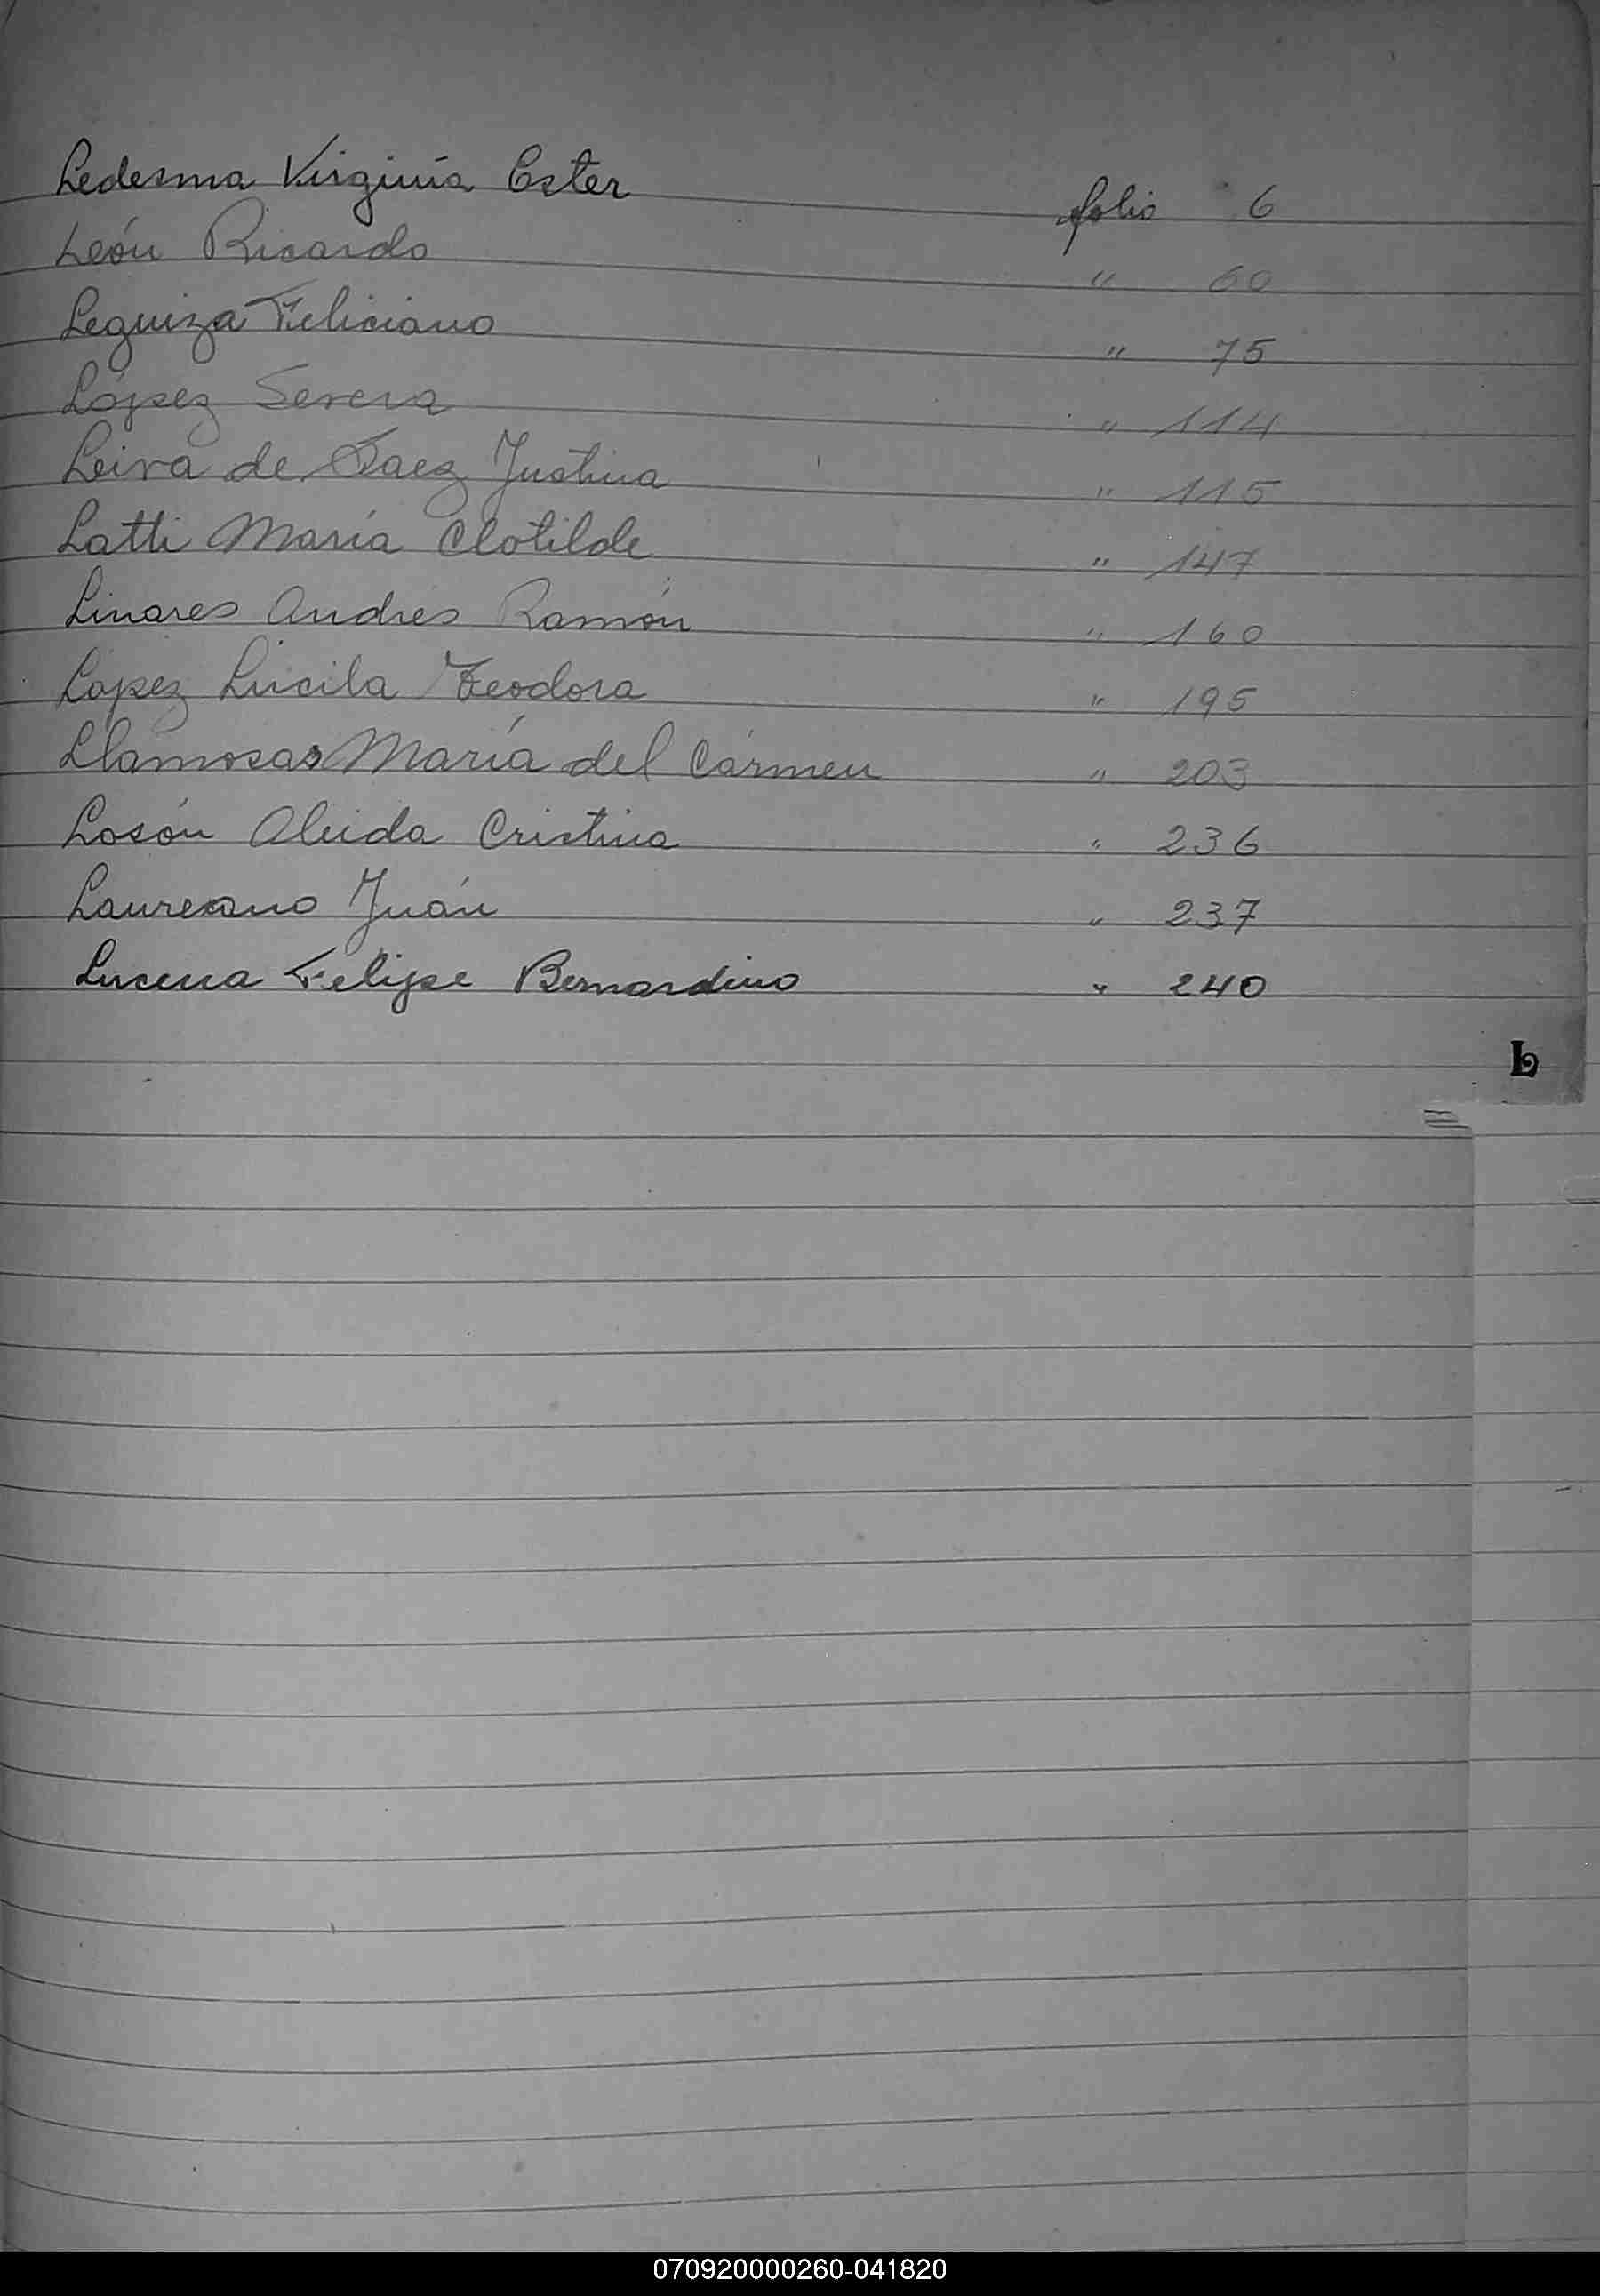 Ledesma Virginia Ester folio 6
León Ricardo " 60
Leguiza Feliciano " 75
López Severa " 114
Leiva de Faez Justina " 115
Latti María Clotilde " 147
Linares Andrés Ramón " 160
López Lucila Teodora " 195
Llamosas María del Cármen " 203
Losón Aleida Cristina " 236
Laureano Juán " 237
Lucena Felipe Bernardino " 240
L
070920000260-041820